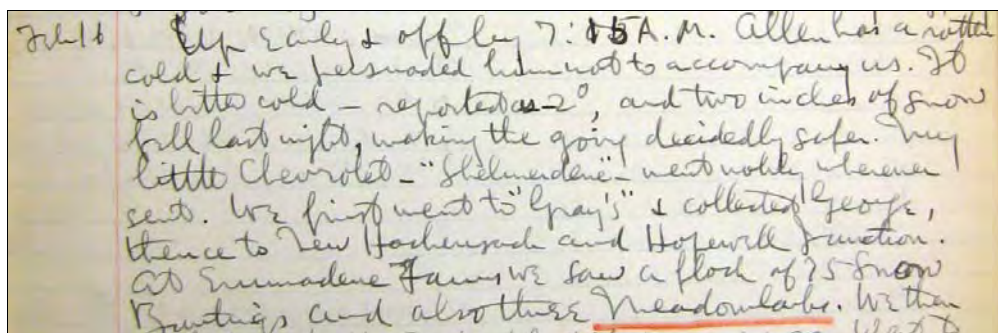 Feb 16 Up early & off by 7:15 A.M. Allen has a rotten
cold & we persuaded him not to accompany us. It
is bitter cold – reported as -2°, and two inches of snow
fell last night, making the going decidedly safer. My
little Chevrolet – "Shelmerdene" – went nobly wherever
sent. We first went to "Gray's" & collected George,
thence to New Hackensack and Hopewell Junction.
At Emmadene Farms we saw a flock of 75 Snow
Buntings and also three Meadowlarks. We then